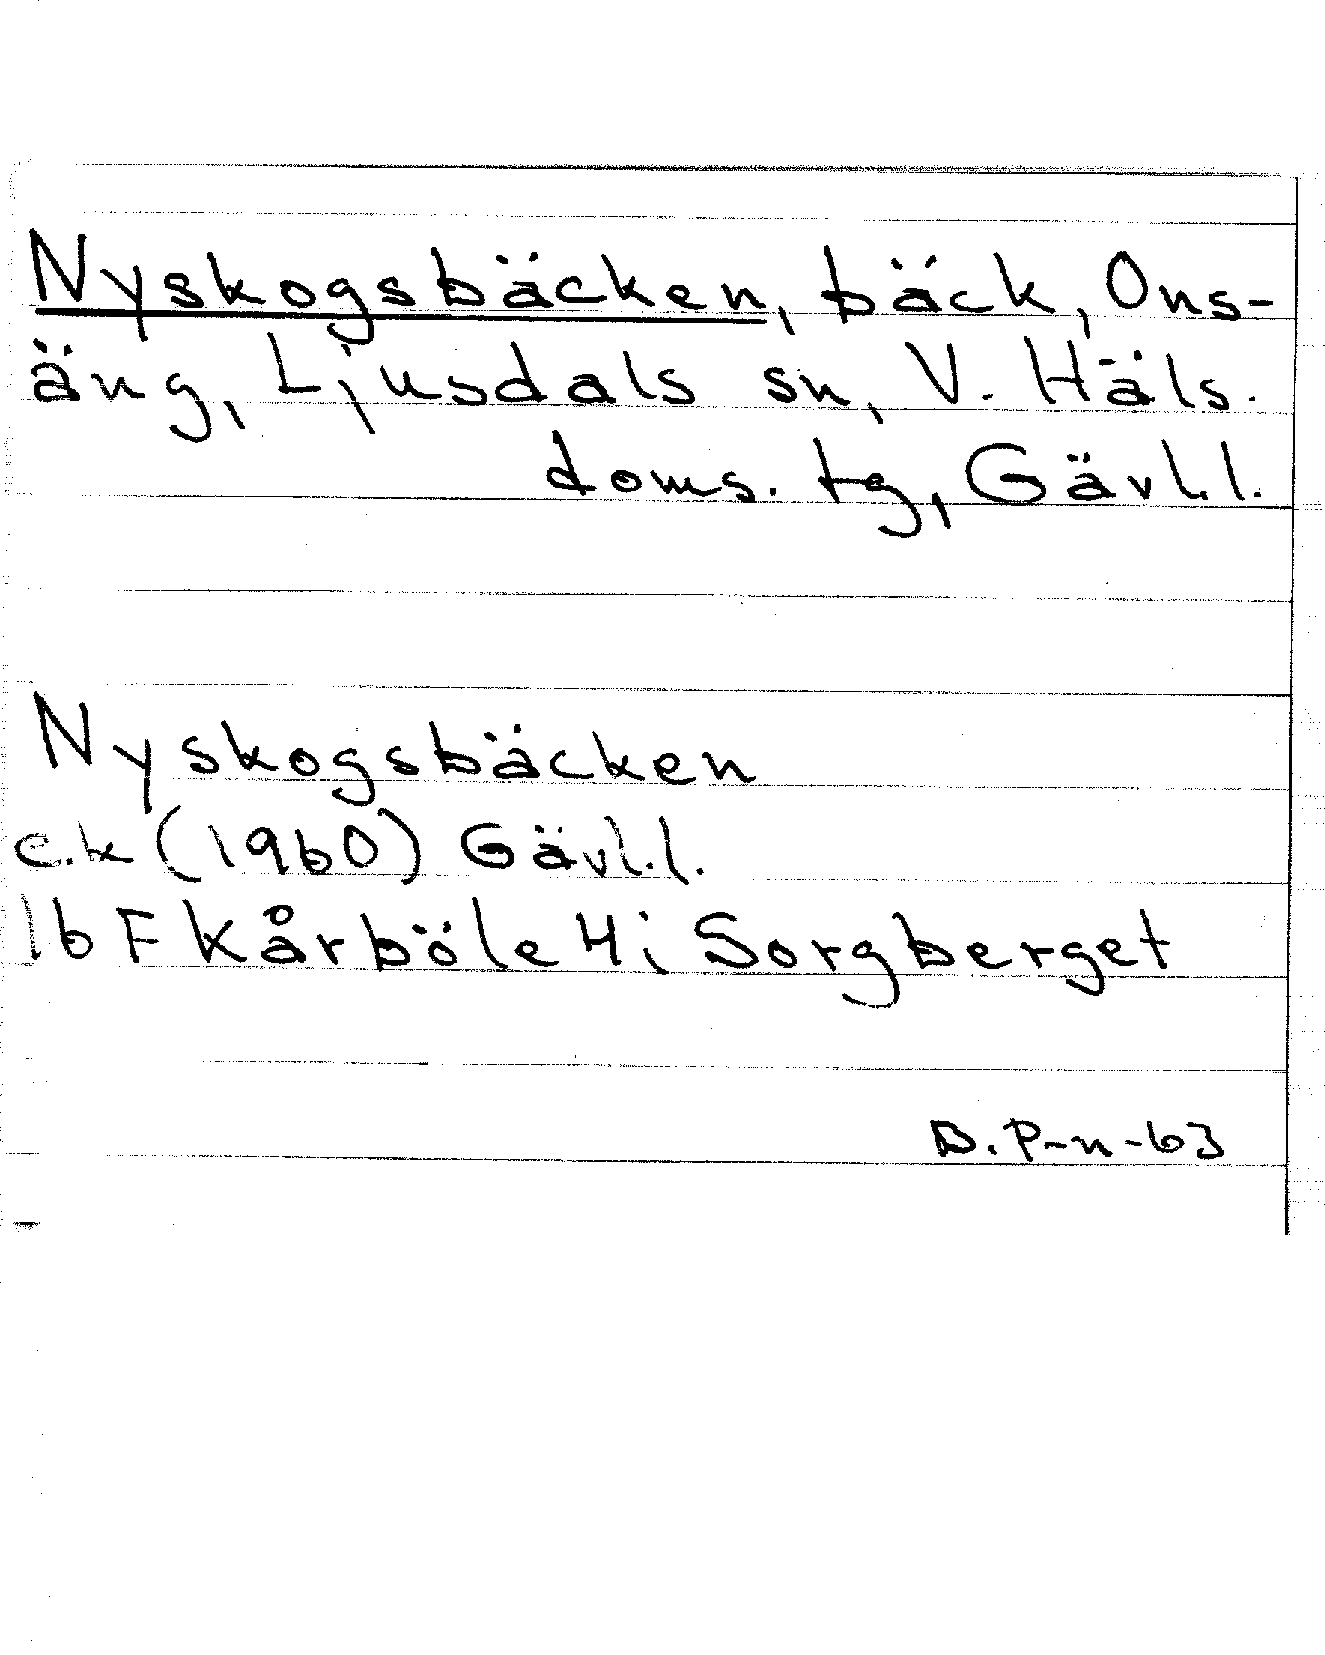 Nyskogsbäcken, bäck, Ons-
äng, Ljusdals sn, V. Häls.
doms. tg, Gävl.l.
Nyskogsbäcken
e.k (1960) Gävl.l.
16 F Kårböle 4i Sorgberget
D. P-n-63